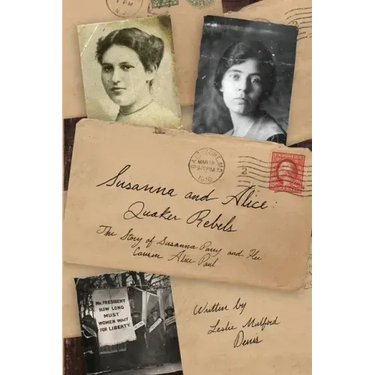 Susanna and Alice:
Quaker Rebels
The Story of Susanna Parry and Her
Cousin Alice Paul
2
MR. PRESIDENT
HOW LONG
MUST
WOMEN WAIT
FOR LIBERTY
Written by
Leslie Mulford
Denis